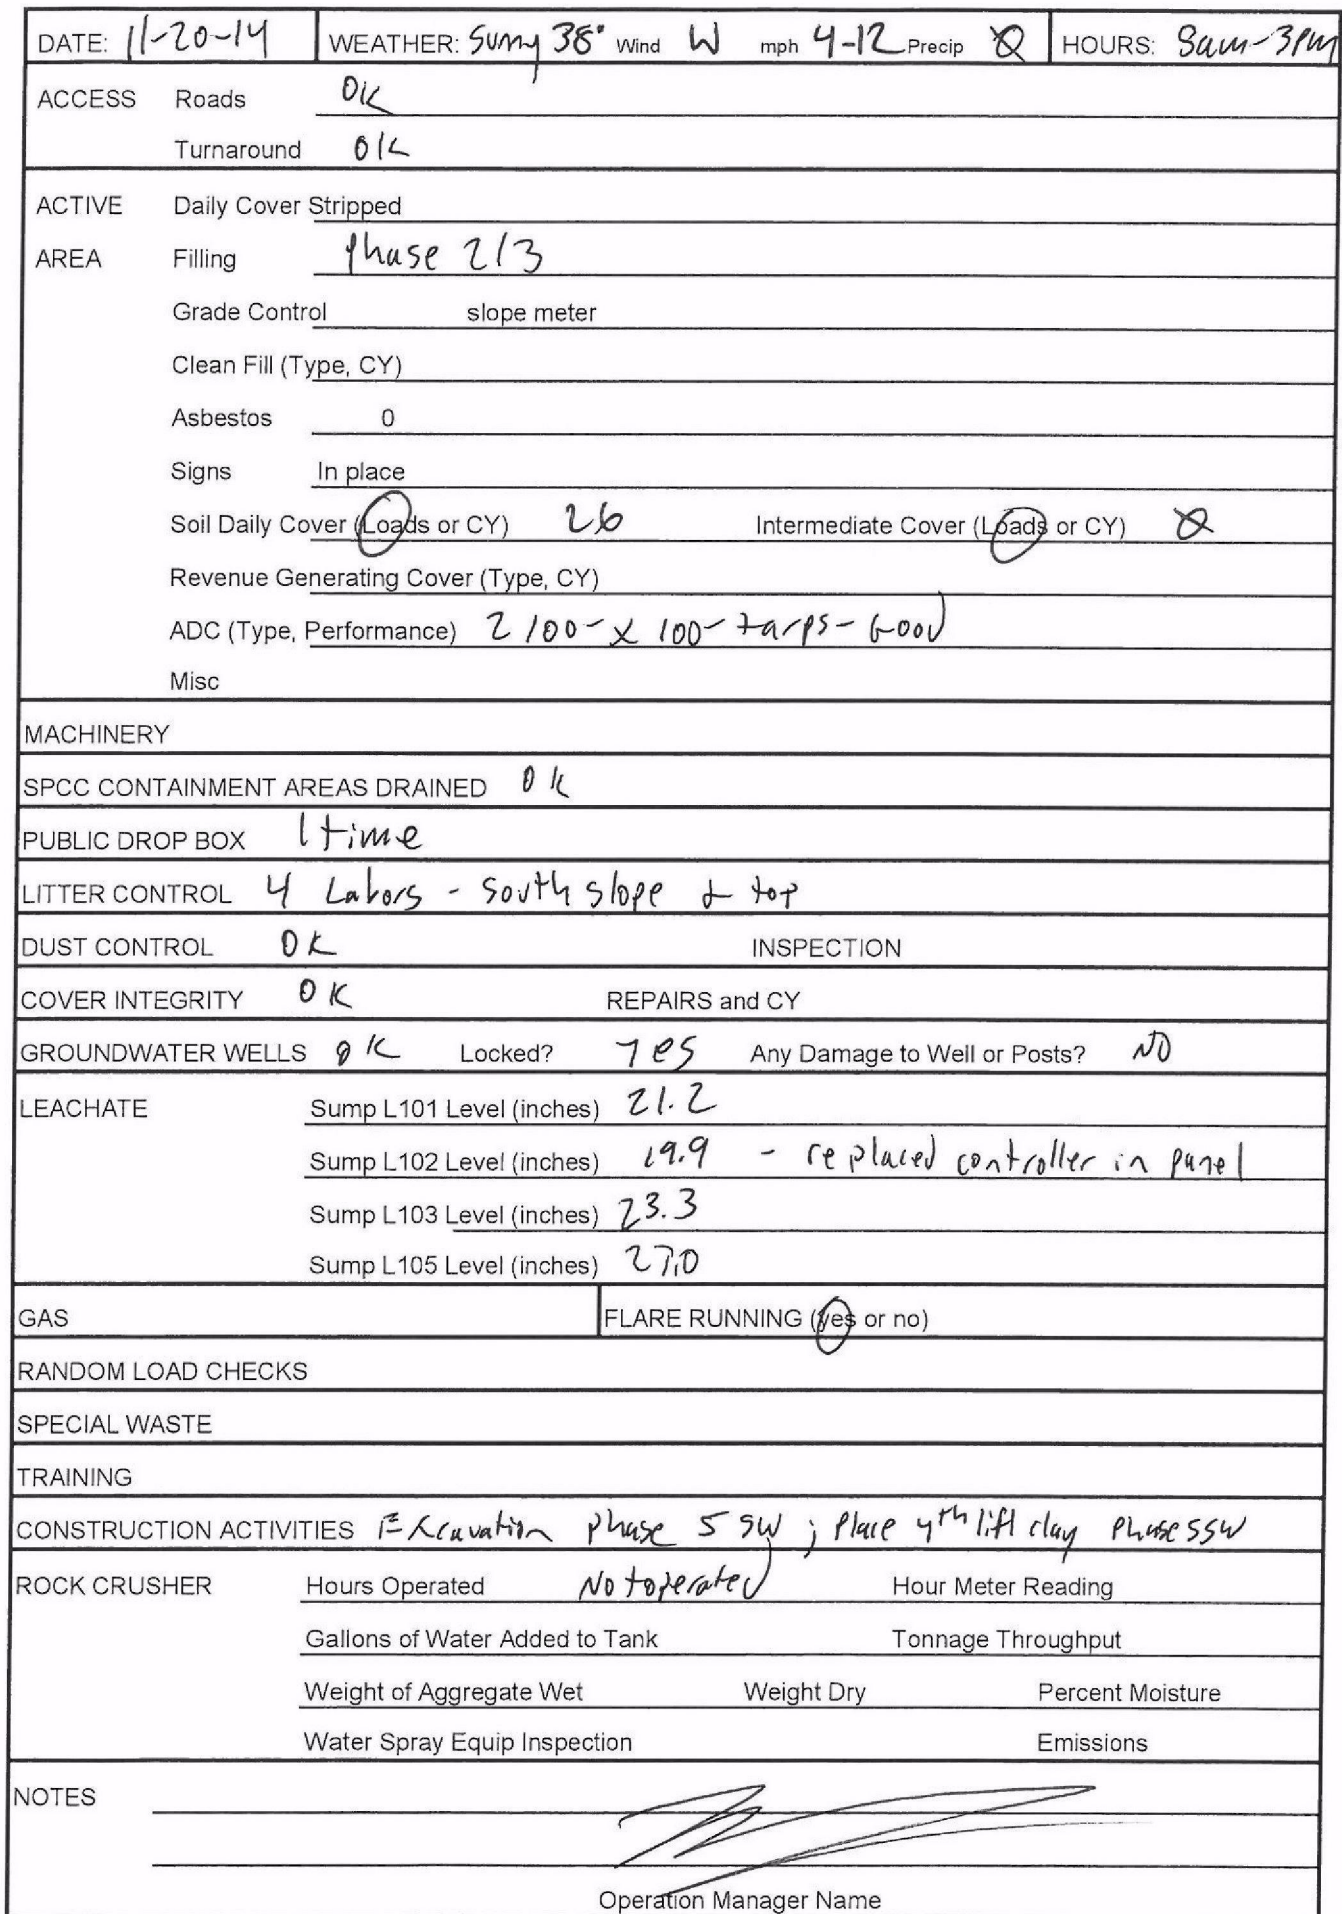 DATE: 11-20-14 WEATHER: Sunny 38° Wind W mph 4-12 Precip Ø HOURS: 8am-3PM
ACCESS Roads OK
Turnaround OK
ACTIVE Daily Cover Stripped
AREA Filling Phase 2/3
Grade Control slope meter
Clean Fill (Type, CY)
Asbestos 0
Signs In place
Soil Daily Cover (Loads or CY) 26 Intermediate Cover (Loads or CY) Ø
Revenue Generating Cover (Type, CY)
ADC (Type, Performance) 2 100- x 100- tarps- Good
Misc
MACHINERY
SPCC CONTAINMENT AREAS DRAINED OK
PUBLIC DROP BOX 1 time
LITTER CONTROL 4 Labors - South slope & top
DUST CONTROL OK INSPECTION
COVER INTEGRITY OK REPAIRS and CY
GROUNDWATER WELLS OK Locked? Yes Any Damage to Well or Posts? NO
LEACHATE Sump L101 Level (inches) 21.2
Sump L102 Level (inches) 19.9 - replaced controller in panel
Sump L103 Level (inches) 23.3
Sump L105 Level (inches) 27.0
GAS FLARE RUNNING (yes or no)
RANDOM LOAD CHECKS
SPECIAL WASTE
TRAINING
CONSTRUCTION ACTIVITIES Excavation phase 5 SW ; Place 4th lift clay Phase 5SW
ROCK CRUSHER Hours Operated Not operated Hour Meter Reading
Gallons of Water Added to Tank Tonnage Throughput
Weight of Aggregate Wet Weight Dry Percent Moisture
Water Spray Equip Inspection Emissions
NOTES
Operation Manager Name